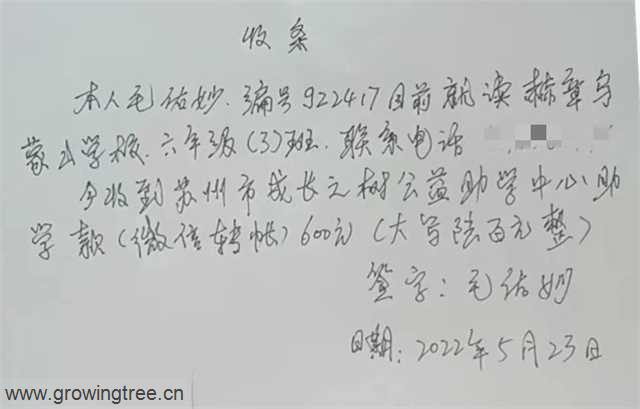 收条
本人毛佑妙.编号922417目前就读 樟章乌
蒙山学校.六年级(3)班.联系电话
今收到苏州市成长之树公益助学中心助
学款(微信转帐)600元(大写陆百元整)
签字:毛佑妙
日期:2022年5月23日
www.growingtree.cn